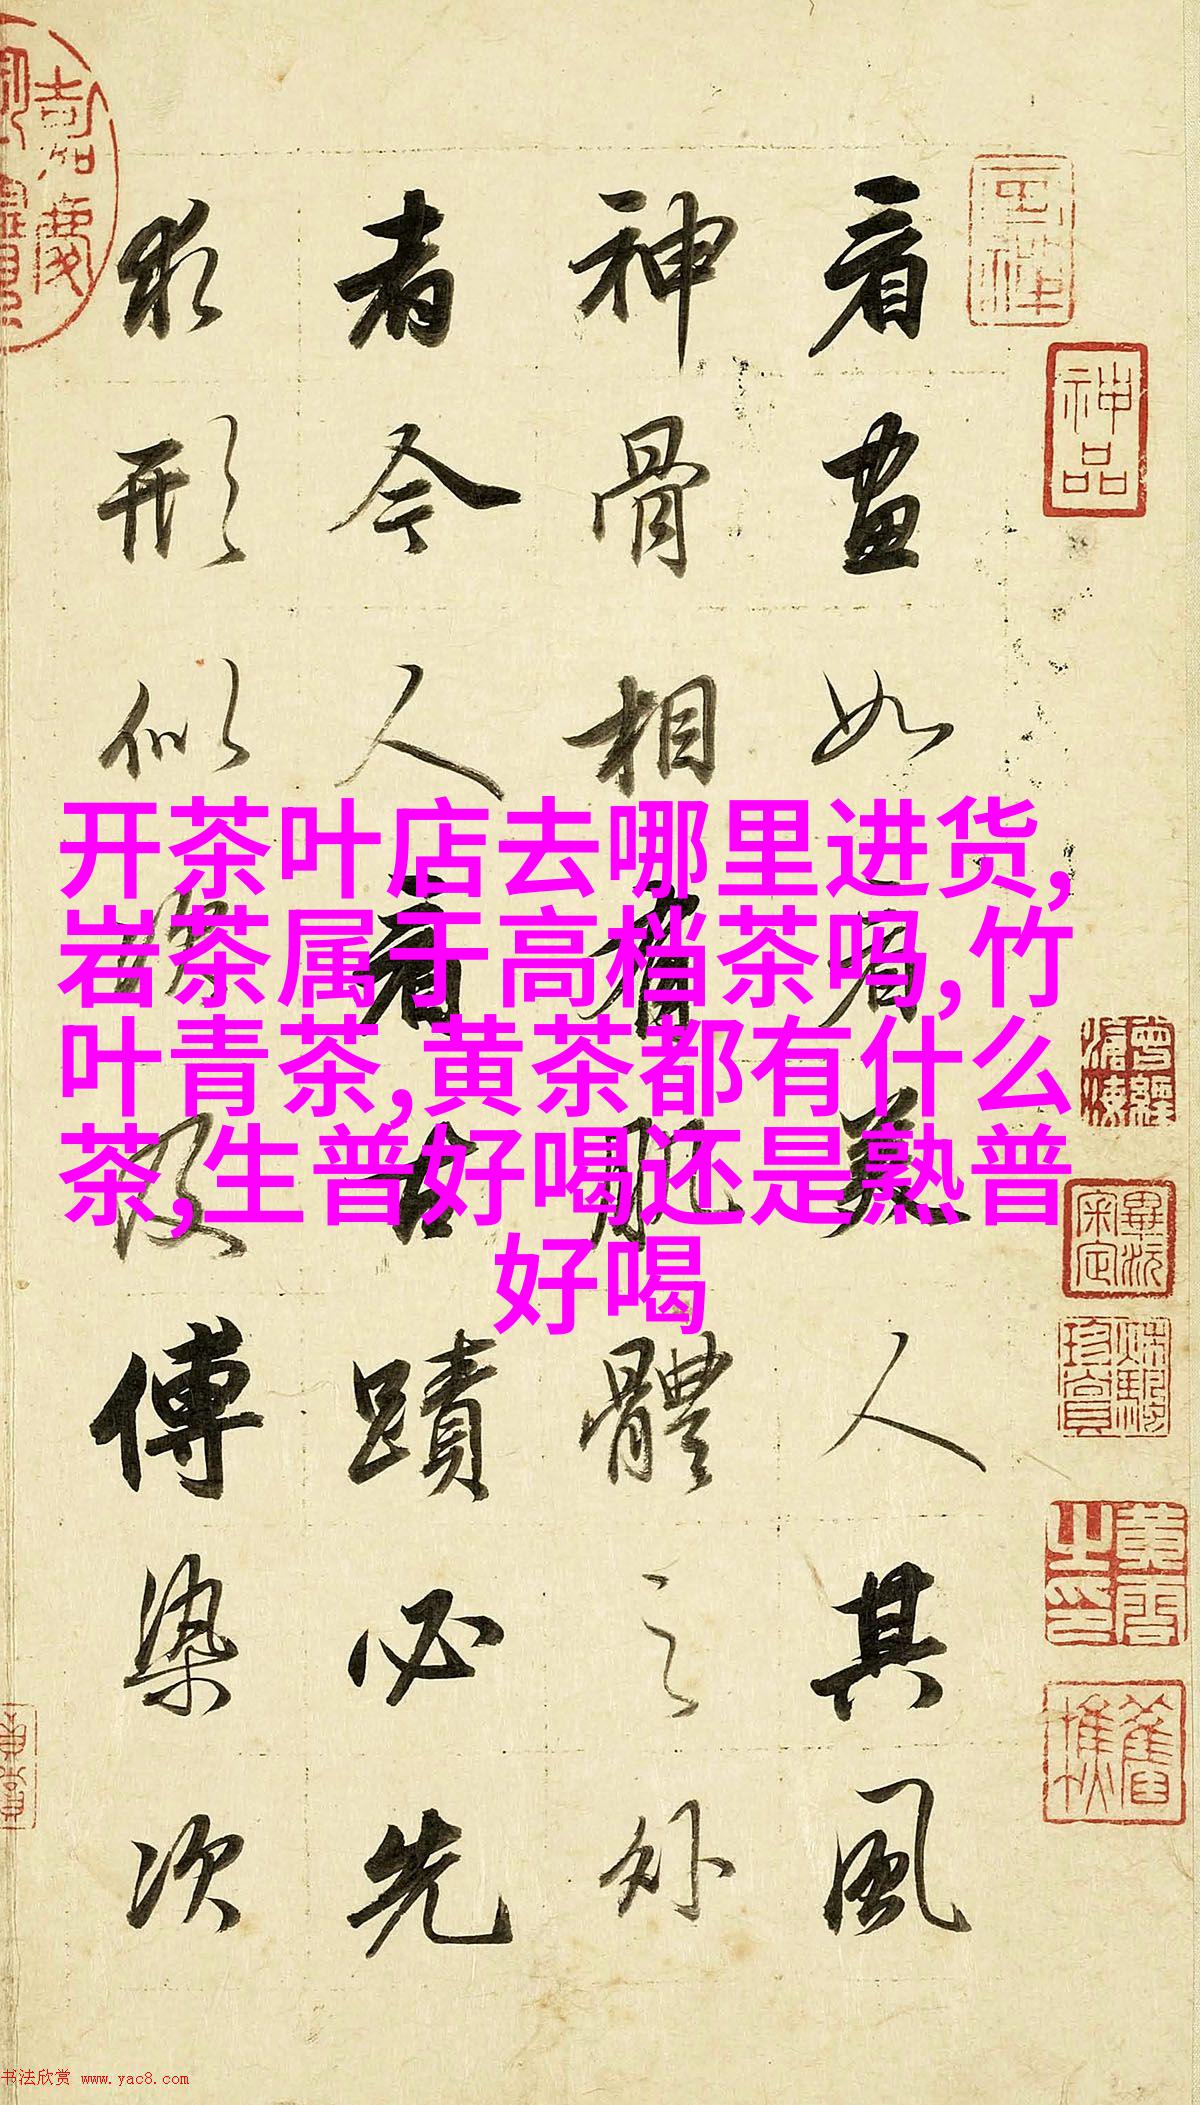 看畫如看美人其風
神骨相有肌體之外
者今人看古蹟必先
求形似次及傅染次
开茶叶店去哪里进货,
岩茶属于高档茶吗,竹
叶青茶,黄茶都有什么
茶,生普好喝还是熟普
好喝
神品
畢沅
审定
书法欣赏 www.yac8.com